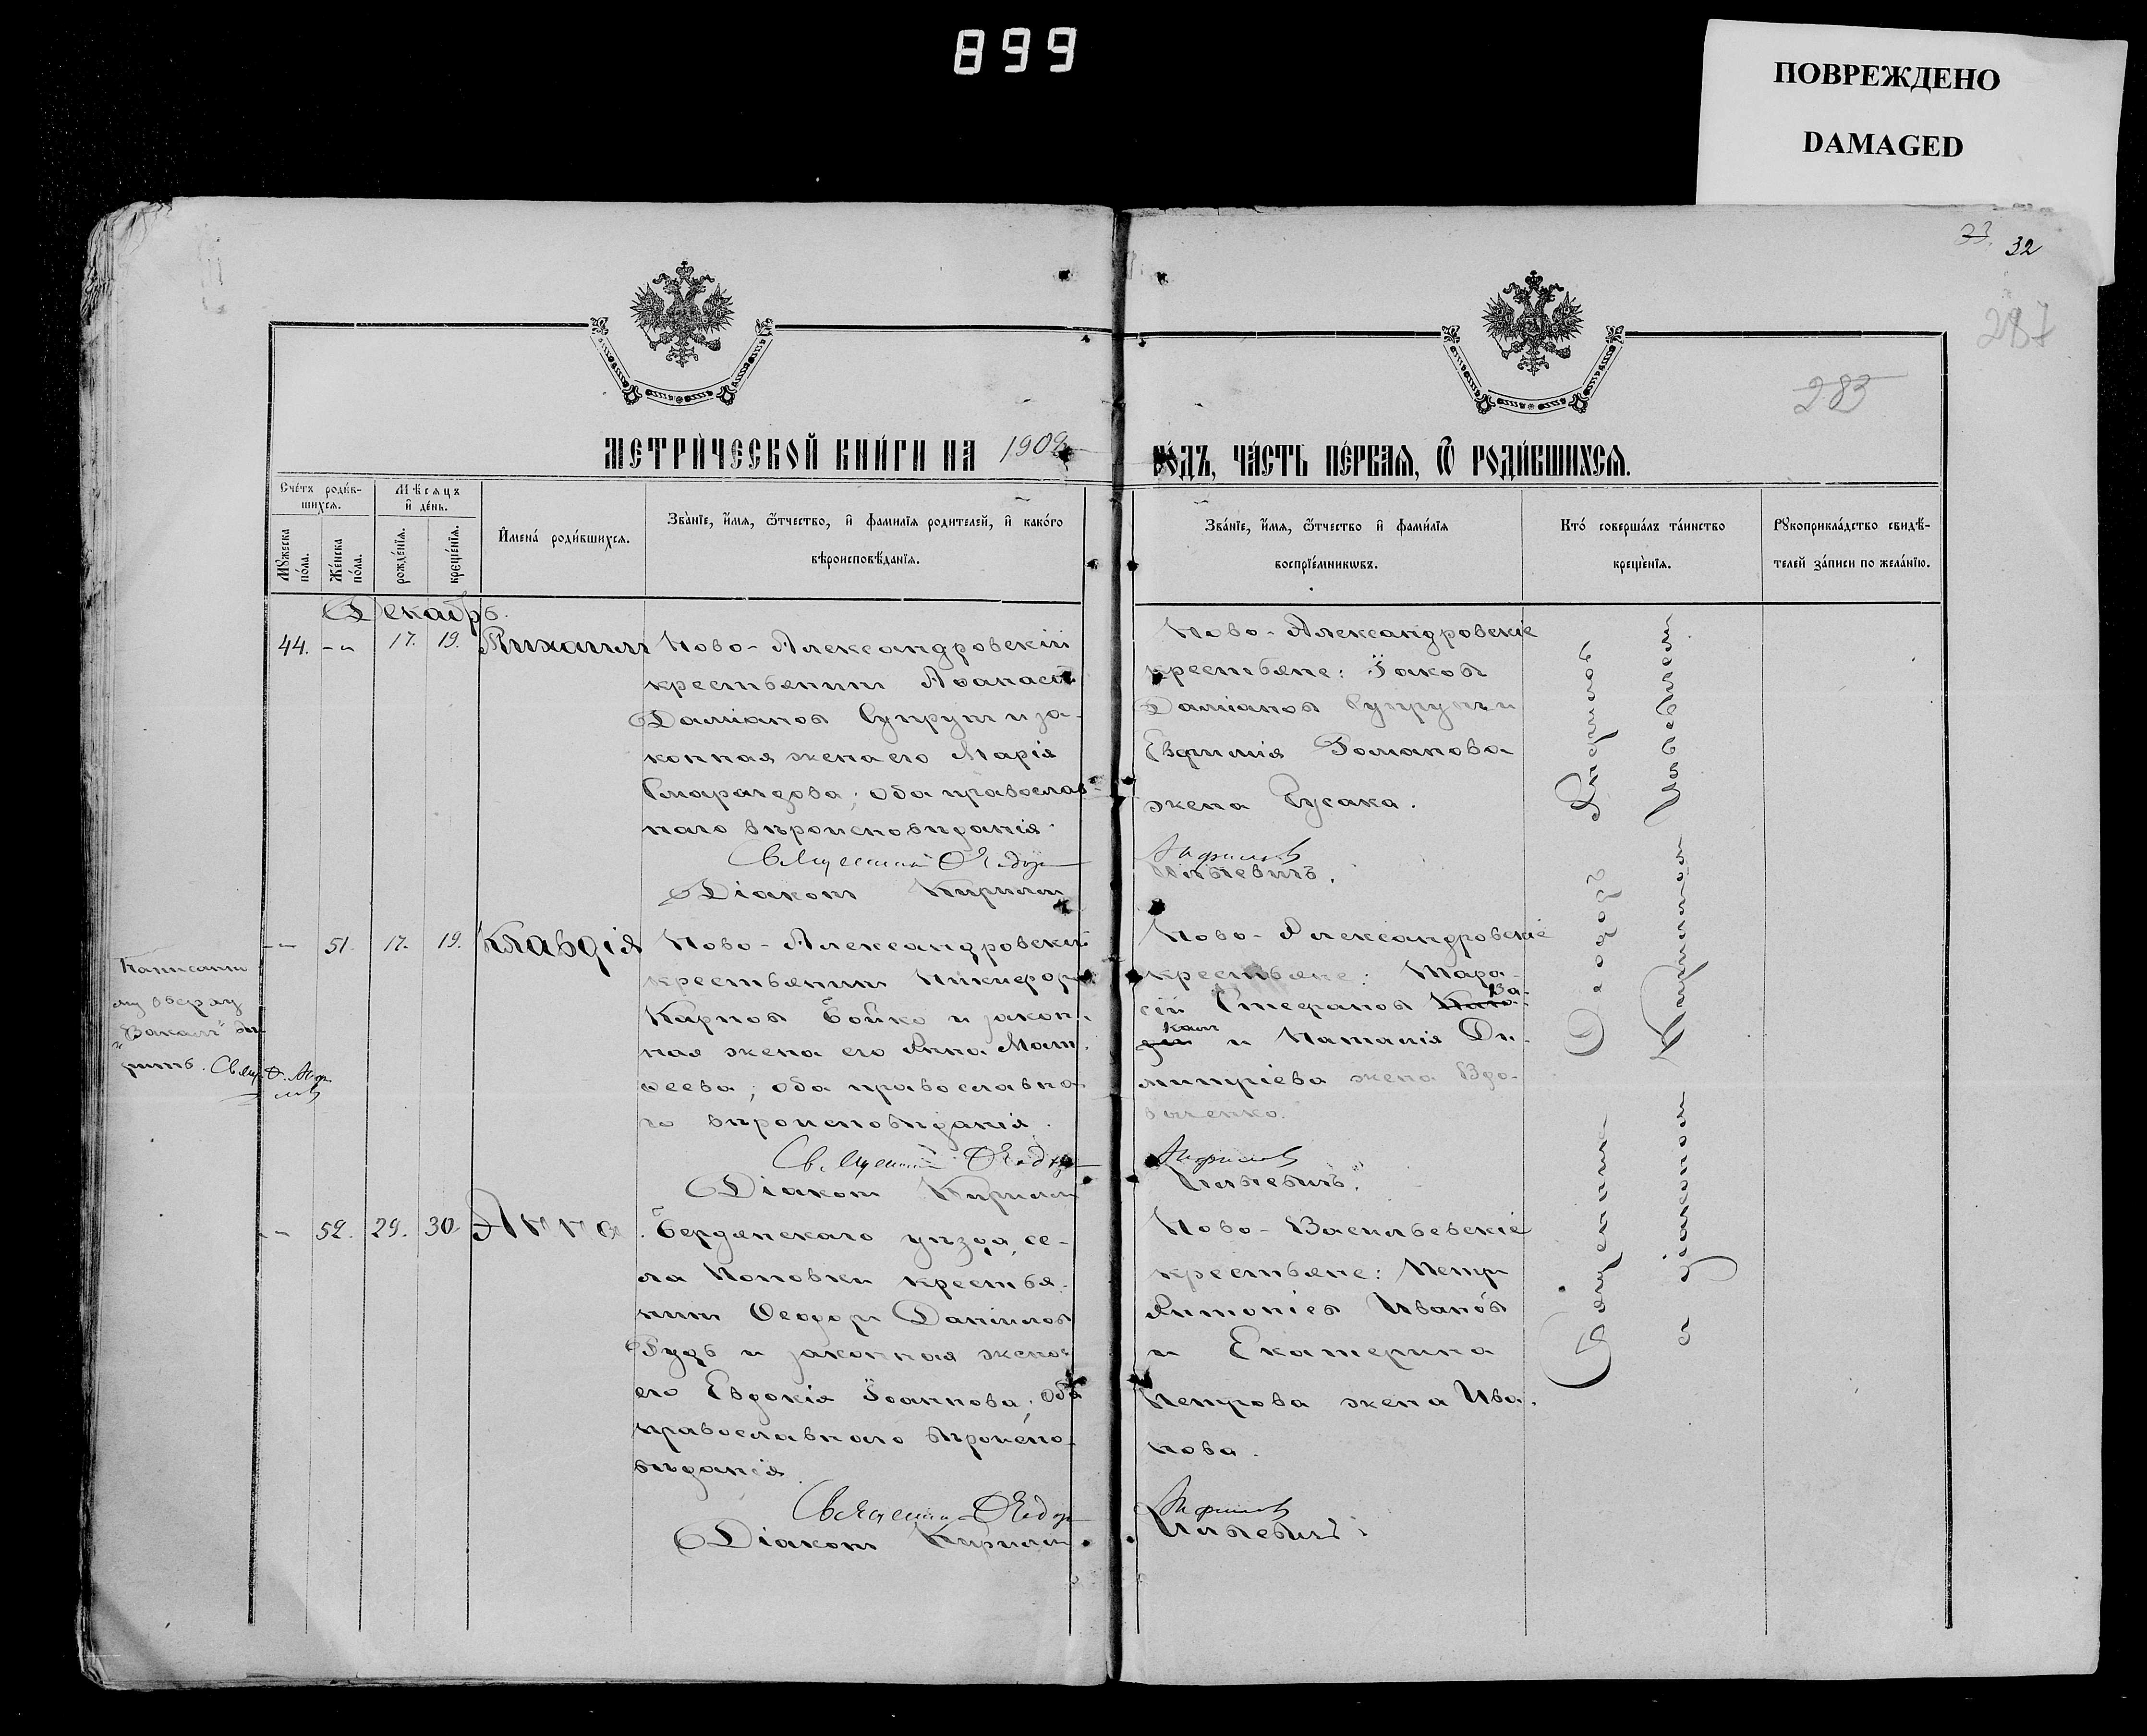 899
ПОВРЕЖДЕНО
DAMAGED
32
287
283
МЕТРИ́ЧЕСКОЙ КНИ́ГИ НА 1902
ГО́ДЪ, ЧА́СТЬ ПЕ́РВАѦ, Ѿ РОДИ́ВШИХСѦ.
Сче́тъ роди́в-
шихсѧ.
Мꙋ́жеска по́ла.
Же́нска по́ла.
Мѣ́сѧцъ
и҆ де́нь.
рожде́нїѧ.
креще́нїѧ.
И҆мена́ роди́вшихсѧ.
Зва́нїе, и҆́мѧ, ѻ҆́тчество, и҆ фами́лїѧ роди́телей, и҆ како́го
вѣроисповѣ́данїѧ.
Зва́нїе, и҆́мѧ, ѻ҆́тчество и҆ фами́лїѧ
воспрїе́мникѡвъ.
Кто́ соверша́лъ та́инство
креще́нїѧ.
Рꙋкоприкла́дство свидѣ́-
телей за́писи по жела́нїю.
Декабрь.
44. -"- 17. 19. Михаилъ
Ново-Александровскій
крестьянинъ Аѳанасій
Даміановъ Супрунъ и за-
конная жена его Марія
Смарагдова; оба православ-
наго вѣроисповѣданія.
Священникъ Ѳеодоръ
Діаконъ Кириллъ
Ново-Александровскіе
крестьяне: Іаковъ
Даміановъ Супрунъ и
Евфимія Романова
жена Русака.
Анфиловъ
Ильевичъ.
-"- 51. 17. 19. Клавдія
Ново-Александровскій
крестьянинъ Никифоръ
Карповъ Бойко и закон-
ная жена его Анна Мат-
ѳеева; оба православна-
го вѣроисповѣданія.
Священникъ Ѳеодоръ
Діаконъ Кириллъ
Написанно-
му сверху
"Вакалъ" вѣ-
рить. Свящ. Ѳ. Анфи-
ловъ
Ново-Александровскіе
крестьяне: Тара-
сій Стефановъ Ва-
калъ и Наталія Ди-
митріева жена Вдо-
виченко.
Анфиловъ
Ильевичъ.
-"- 52. 29. 30. Анна
Бердянскаго уѣзда, се-
ла Поповки крестья-
нинъ Ѳеодоръ Даніиловъ
Рудь и законная жена
его Евдокія Іоаннова; оба
православнаго вѣроиспо-
вѣданія.
Священникъ Ѳеодоръ
Діаконъ Кириллъ
Ново-Васильевскіе
крестьяне: Петръ
Антоніевъ Ивановъ
и Екатерина
Петрова жена Ива-
нова.
Анфиловъ
Ильевичъ.
Священникъ Ѳеодоръ Анфиловъ
съ діакономъ Кирилломъ Ильевичемъ